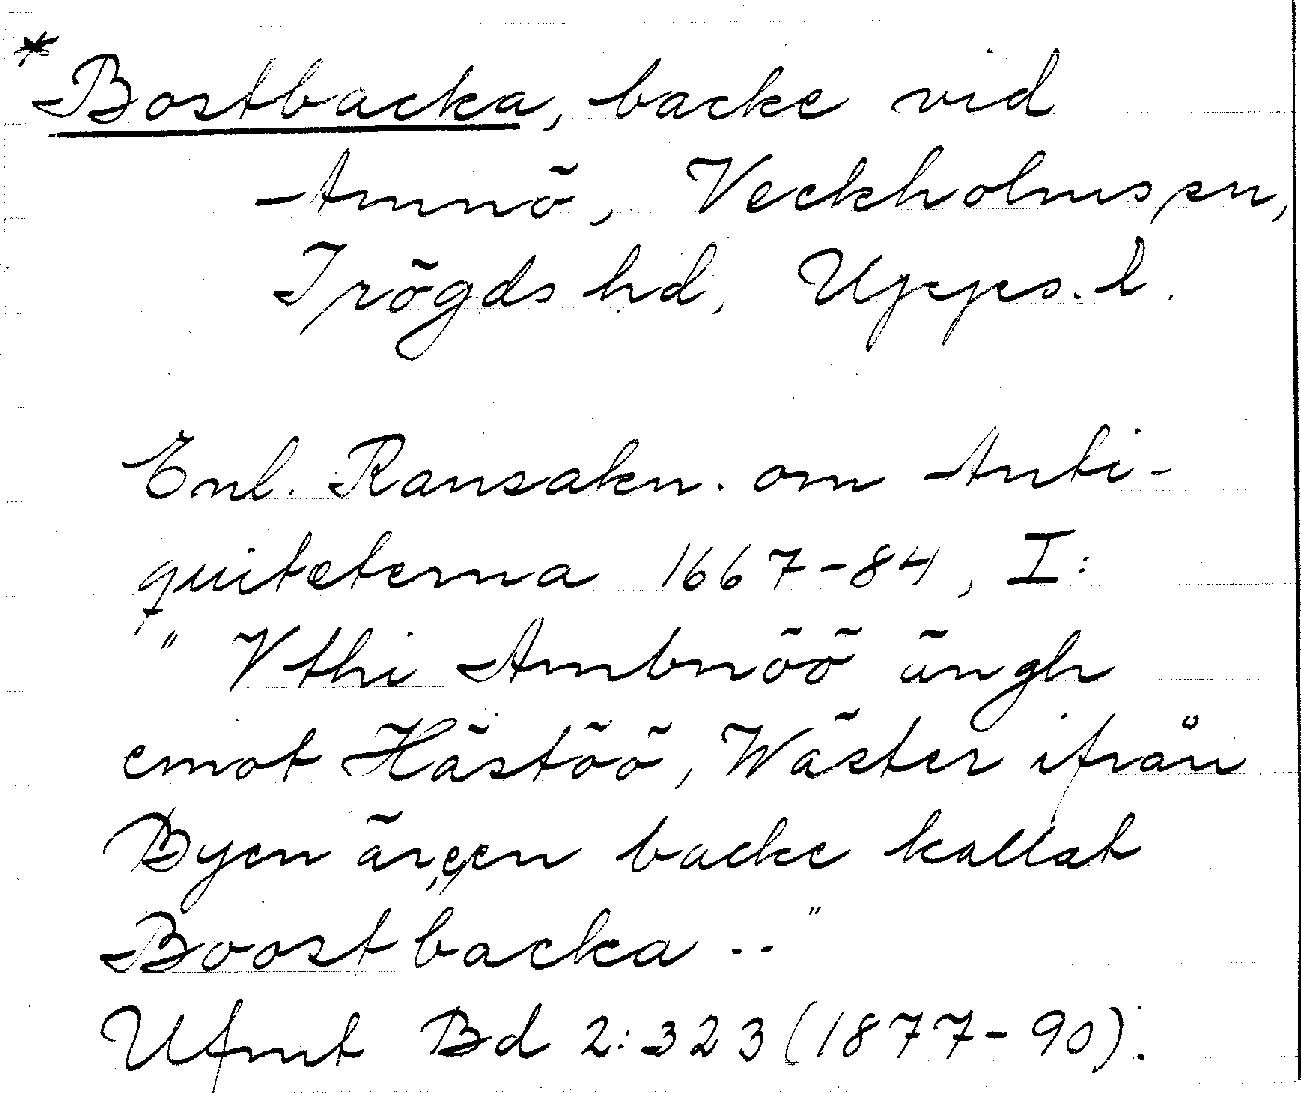 * Bostbacka, backe vid
Amnö, Veckholms sn,
Trögds hd, Upps. l.
Enl. Ransakn. om Anti-
quiteterna 1667-84, I:
" Vthi Ambnöö ängh
emot Hästöö, Wäster ifrån
Byen är, een backe kallat
Boostbacka .. "
Ufmt Bd 2:323 (1877-90).